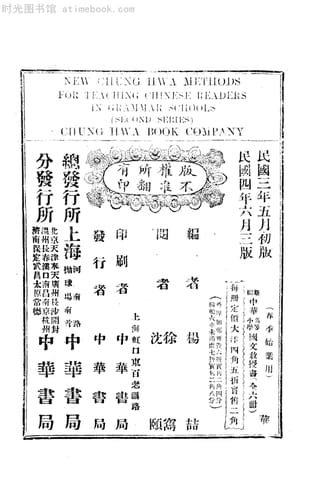 时光图书馆 atimebook.com
NEW CHUNG HWA METHODS
FOR TEACHING CHINESE READERS
IN GRAMMAR SCHOOLS
(SECOND SERIES)
CHUNG HWA BOOK COMPANY
民國三年五月初版
民國四年六月三版
(春季始業用)
新編中華高等小學國文教授書(全六冊)
每冊定價大洋四角五折實售二角
版權所有
不准翻印
編者 楊 喆 華
閱者 徐 沈
印刷者 中華書局
上海虹口東百老匯路
發行者 中華書局
總發行所 上海河南路拋球場 中華書局
分發行所
北京天津奉天廣州長沙開封
溫州長春漢口南昌南京杭州
濟南保定武昌太原常德
中華書局